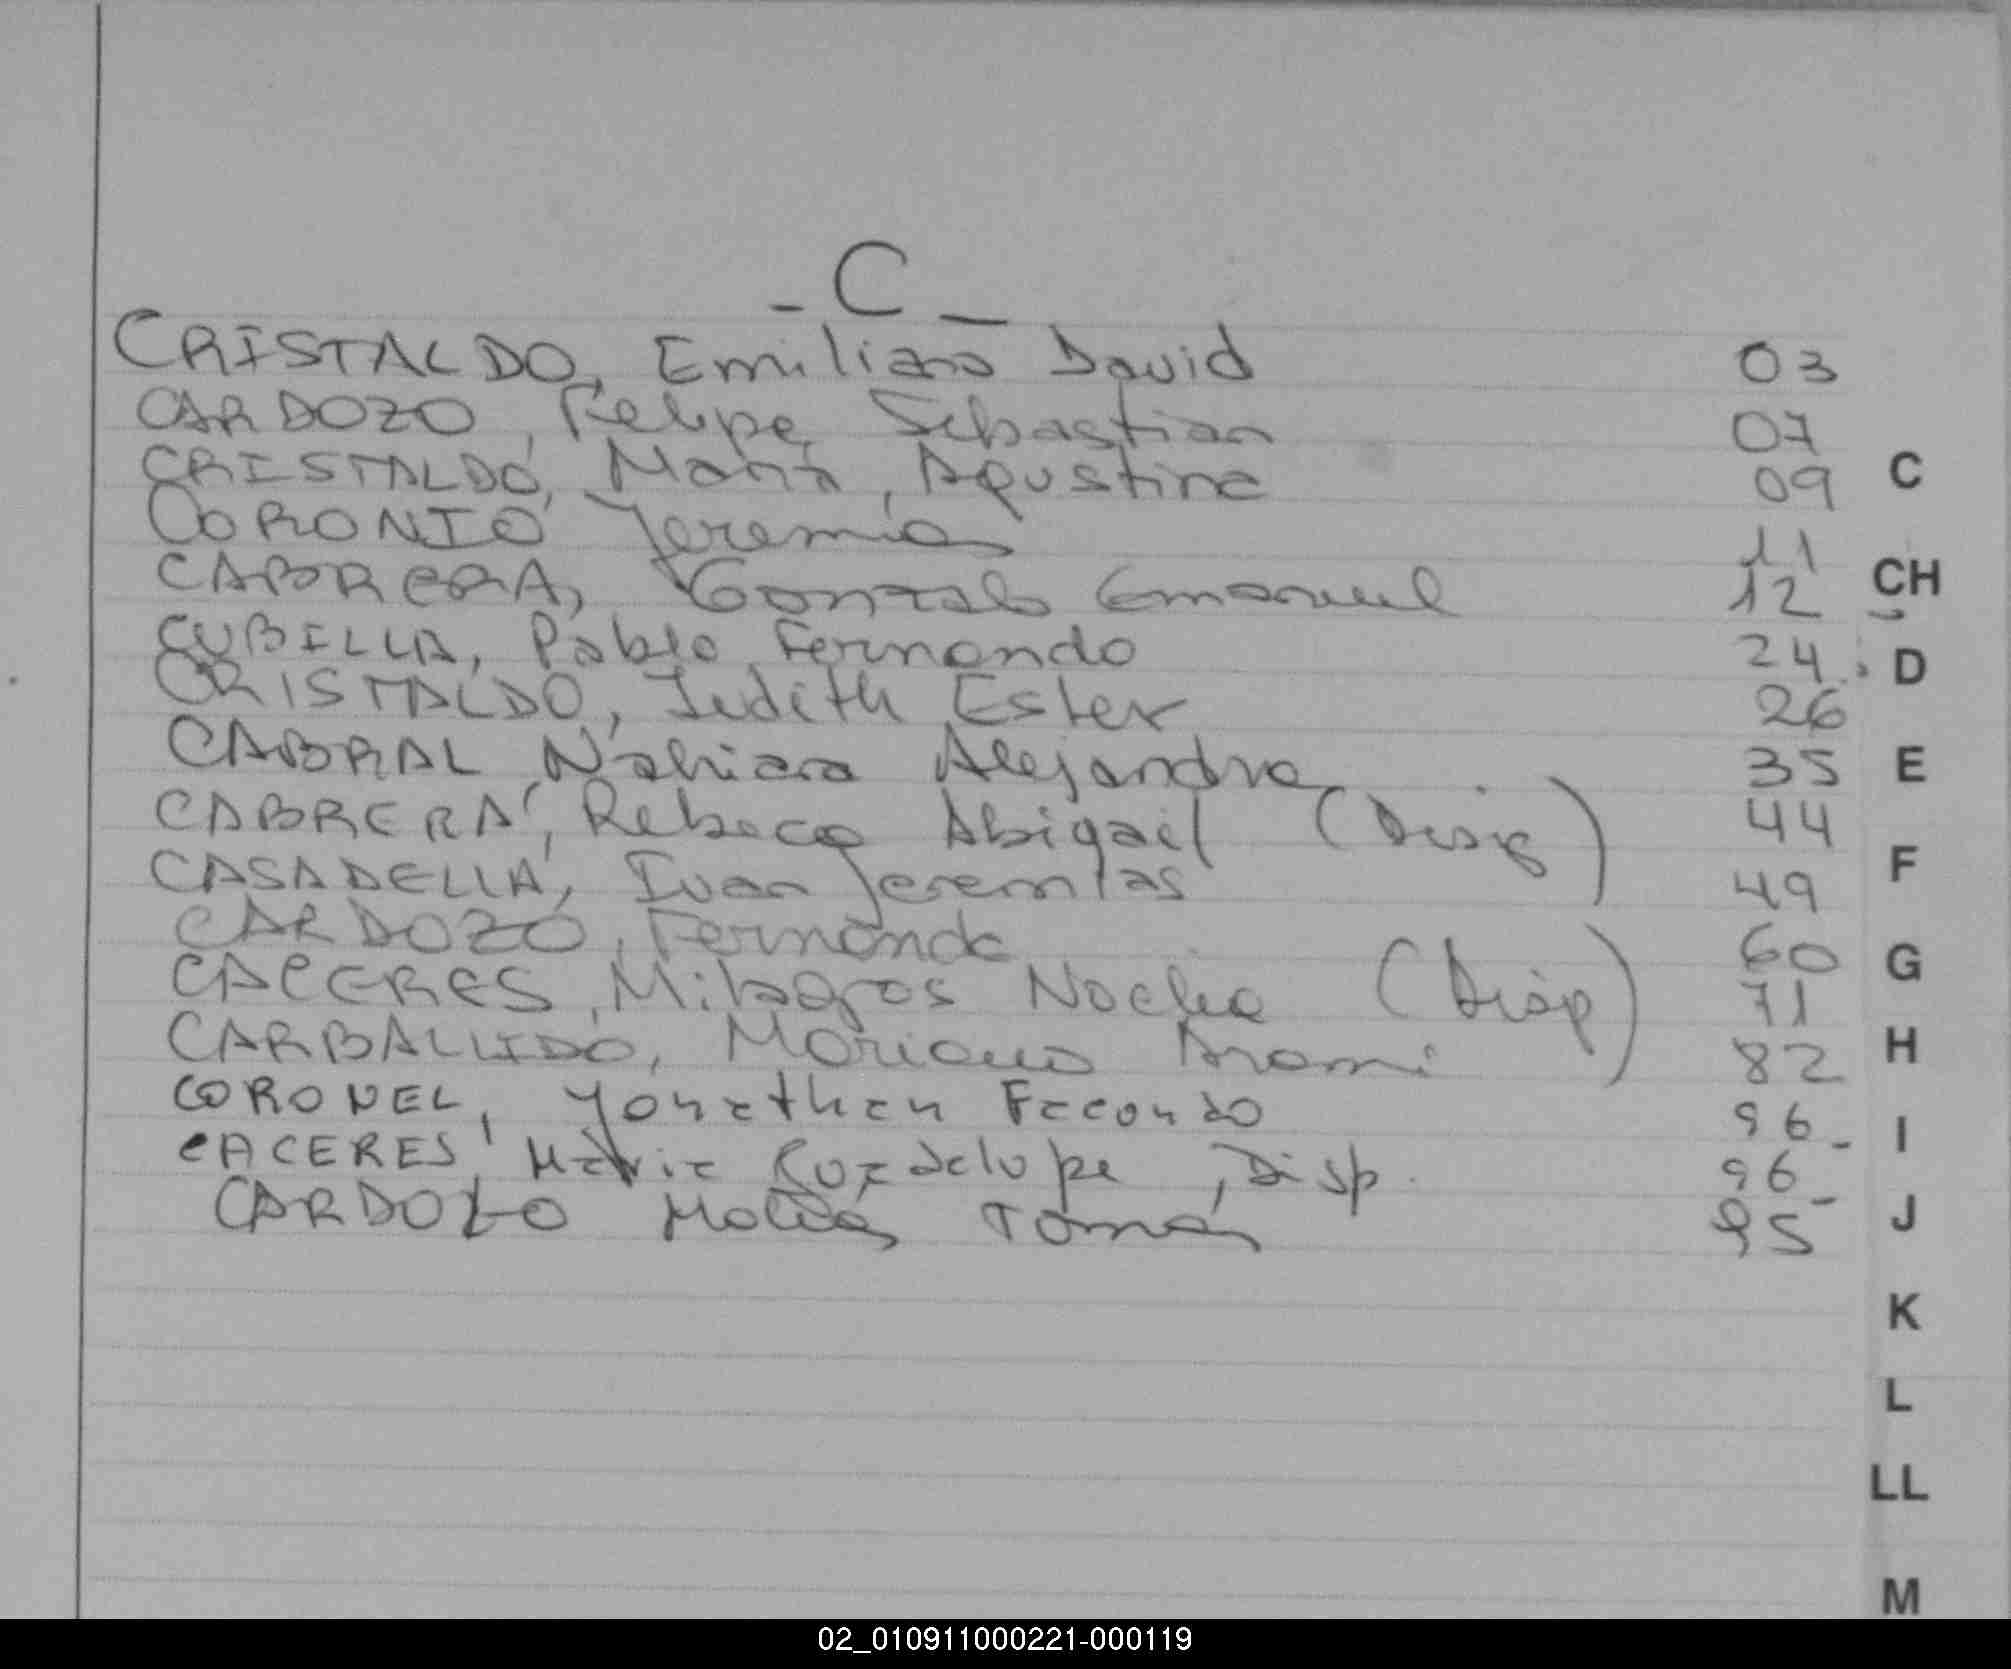 - C -
CRISTALDO, Emiliano David 03
CARDOZO, Felipe, Sebastian 07
CRISTALDO, Maria, Agustina 09 C
CORONIO Jeremias 11
CABRERA, Gonzalo Emanuel 12 CH
CUBILLA, Pablo Fernando 24 D
CRISTALDO, Judith Ester 26
CABRAL Nahiara Alejandra 35 E
CABRERA, Rebeca Abigail (Disp) 44
CASADELLA, Ivan Jeremias 49 F
CARDOZO, Fernando 60 G
CACERES, Milagros Noelia (Disp) 71
CARBALLIDO, Mariano Arami 82 H
CORONEL, Yonathan Facundo 96 I
CACERES, Maria Guadelupe, Disp. 96
CARDOZO Matias Tomas 95 J
K
L
LL
M
02_010911000221-000119